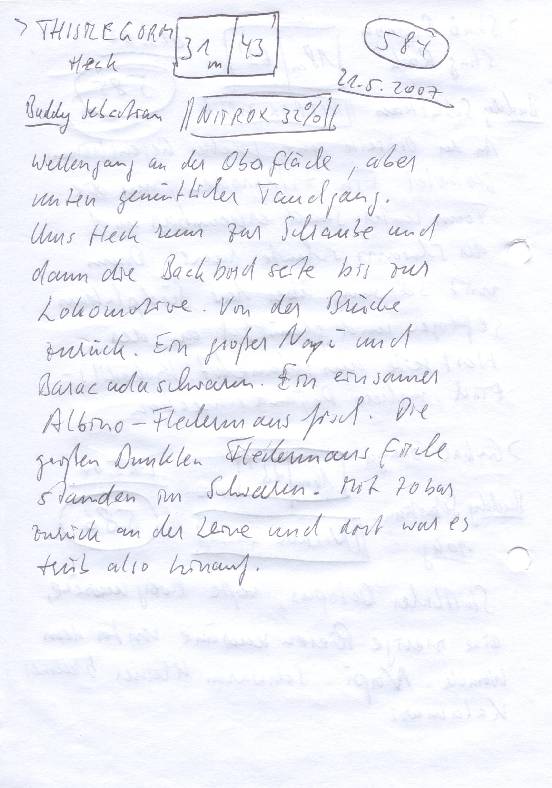 > THISTLEGORM 31m 43 584
Heck
21.5.2007
Buddy Sebastian NITROX 32%
Wellengang an der Oberfläche, aber
unten gemütlicher Tauchgang.
Ums Heck rum zur Schraube und
dann die Backbordseite bis zur
Lokomotive. Von der Brücke
zurück. Ein großer Napi und
Baracudaschwarm. Ein einsamer
Albino-Fledermausfisch. Die
großen Dunklen Fledermausfische
standen im Schwarm. Mit 70 bar
zurück an der Leine und dort war es
trüb also hinauf.